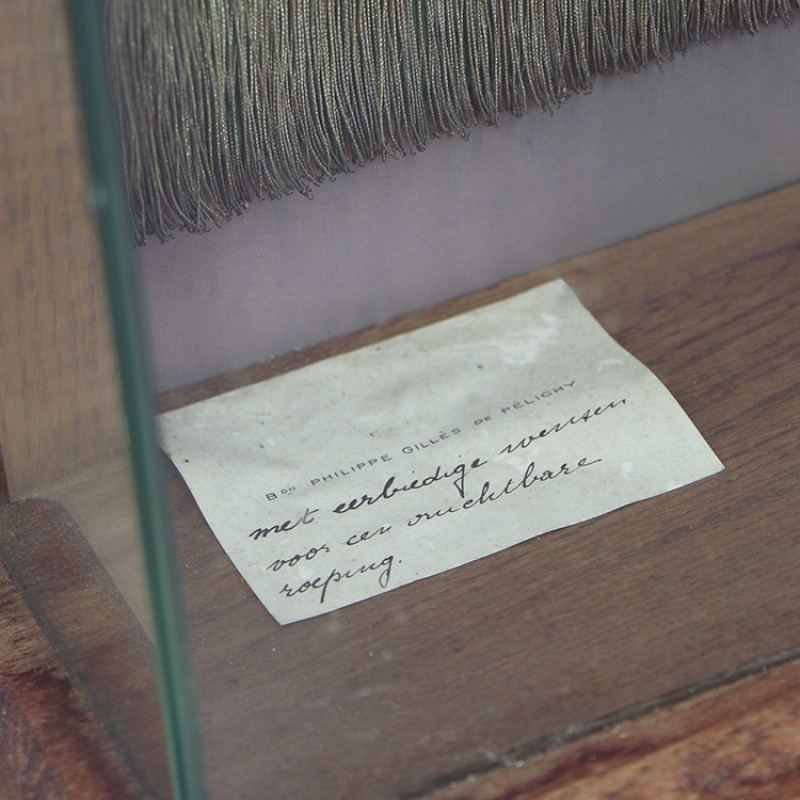 Bᵒⁿ PHILIPPE GILLÈS DE PÉLICHY
met eerbiedige wensen
voor een vruchtbare
roeping.